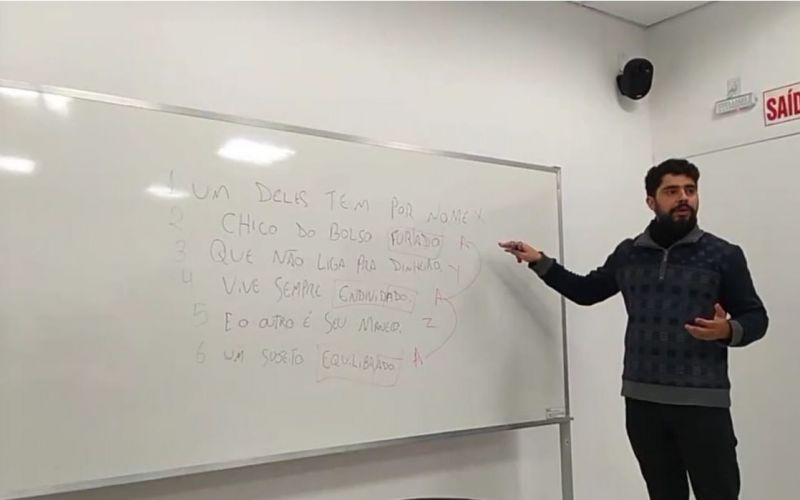 1 UM DELES TEM POR NOME X
2 CHICO DO BOLSO FURTADO, A
3 QUE NÃO LIGA PRA DINHEIRO, Y
4 VIVE SEMPRE ENDIVIDADO. A
5 E O OUTRO É SEU MANECO. Z
6 UM SUJEITO EQUILIBRADO. A
SAÍD